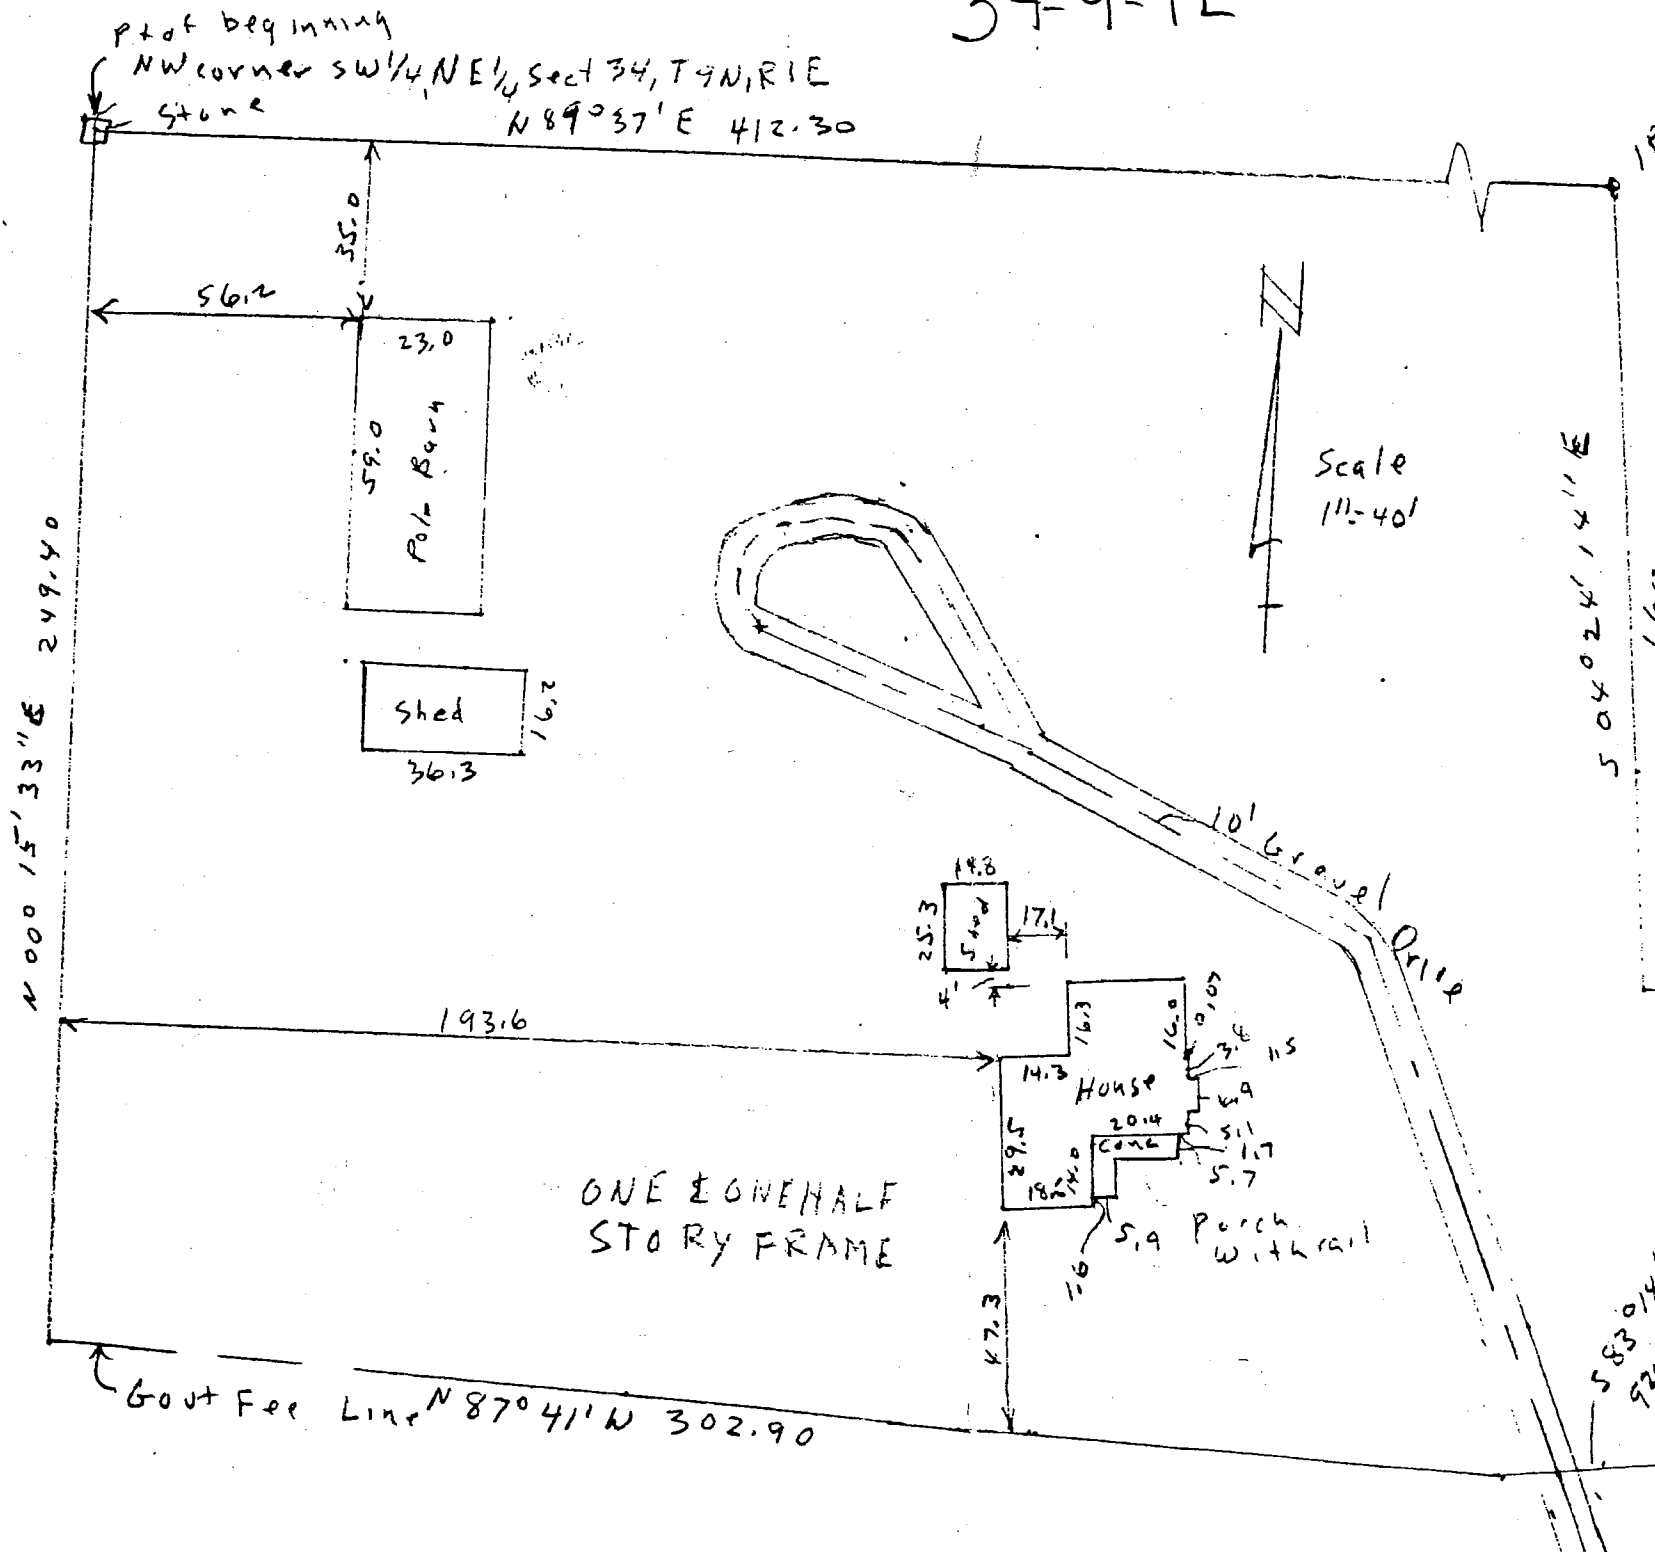 34-9-1E
Pt of beginning
NW corner SW 1/4, NE 1/4, Sect 34, T9N, R1E
Stone
N 89° 37' E 412.30
35.0
56.2
23.0
59.0
Pole Barn
Scale
1"=40'
N 00° 15' 33" E 249.40
S 04° 24' 14" E
Shed
16.2
36.3
10' Gravel Drive
14.8
25.3
Shed
17.1
4'
193.6
16.3
16.0
0.07
3.8
1.5
14.3
House
20.4
Conc
5.1
1.7
5.7
29.5
14.0
5.9
1.6
Porch
with rail
ONE & ONE HALF
STORY FRAME
47.3
Govt Fee Line N 87° 41' W 302.90
S 83° 14'